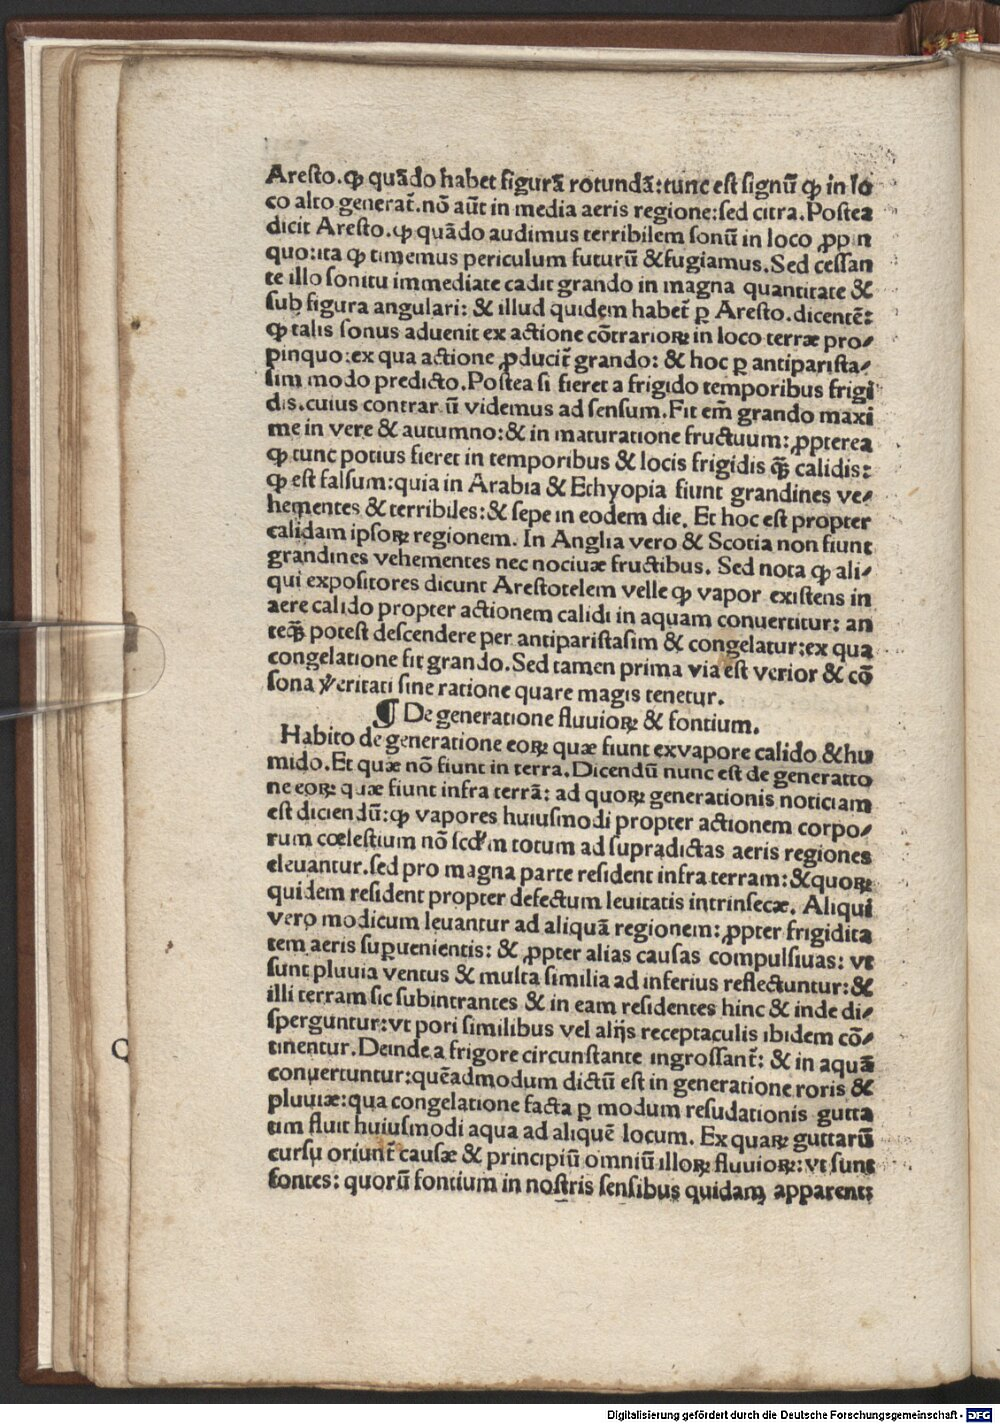 Aresto.ꝙ quãdo habet figurã rotundã:tunc est signũ ꝙ in lo
co alto generat̃.nõ aũt in media aeris regione:sed citra.Postea
dicit Aresto.ꝙ quãdo audimus terribilem sonũ in loco ꝓpin
quo:ita ꝙ timemus periculum futurũ &fugiamus.Sed cessan
te illo sonitu immediate cadit grando in magna quantitate &
sub figura angulari: & illud quidem habet̃ ꝑ Aresto.dicentẽ:
ꝙ talis sonus aduenit ex actione cõtrarioꝝ in loco terræ pro⸗
pinquo:ex qua actione ꝓducit̃ grando: & hoc ꝑ antiparista⸗
sim modo predicto.Postea si fieret a frigido temporibus frigi
dis.cuius contrar ũ videmus ad sensum.Fit em̃ grando maxi
me in vere & autumno:& in maturatione fructuum:ꝓpterea
ꝙ tunc potius fieret in temporibus & locis frigidis q̃ꝫ calidis:
ꝙ est falsum:quia in Arabia & Ethyopia fiunt grandines ve⸗
hementes & terribiles:& sepe in eodem die. Et hoc est propter
calidam ipsoꝝ regionem. In Anglia vero & Scotia non fiunt
grandines vehementes nec nociuæ fructibus. Sed nota ꝙ ali⸗
qui expositores dicunt Arestotelem velle ꝙ vapor existens in
aere calido propter actionem calidi in aquam conuertitur: an
teq̃ꝫ potest descendere per antiparistasim & congelatur:ex qua
congelatione fit grando.Sed tamen prima via est verior & cõ
sona v̾eritati sine ratione quare magis tenetur.
¶ De generatione fluuioꝝ & fontium.
Habito de generatione eoꝝ quæ fiunt exvapore calido &hu
mido.Et quæ nõ fiunt in terra.Dicendũ nunc est de generatio
ne eoꝝ quæ fiunt infra terrã: ad quoꝝ generationis noticiam
est diciendũ:ꝙ vapores huiusmodi propter actionem corpo⸗
rum cœlestium nõ scd̾m totum ad supradictas aeris regiones
eleuantur.sed pro magna parte resident infra terram:&quoꝝ
quidem resident propter defectum leuitatis intrinsecæ. Aliqui
vero modicum leuantur ad aliquã regionem:ꝓpter frigidita
tem aeris suꝑuenientis: & ꝓpter alias causas compulsiuas: vt
sunt pluuia ventus & multa similia ad inferius reflectuntur:&
illi terram sic subintrantes & in eam residentes hinc & inde di⸗
sperguntur:vt pori similibus vel alijs receptaculis ibidem cõ⸗
tinentur.Deinde a frigore circunstante ingrossant̃: & in aquã
conuertuntur:quẽadmodum dictũ est in generatione roris &
pluuiæ:qua congelatione facta ꝑ modum resudationis gutta
tim fluit huiusmodi aqua ad aliquẽ locum. Ex quaꝝ guttarũ
cursu oriunt̃ causæ & principiũ omniũ illoꝝ fluuioꝝ:vt sunt
fontes: quorũ fontium in nostris sensibus quidam apparent:
Digitalisierung gefördert durch die Deutsche Forschungsgemeinschaft - DFG